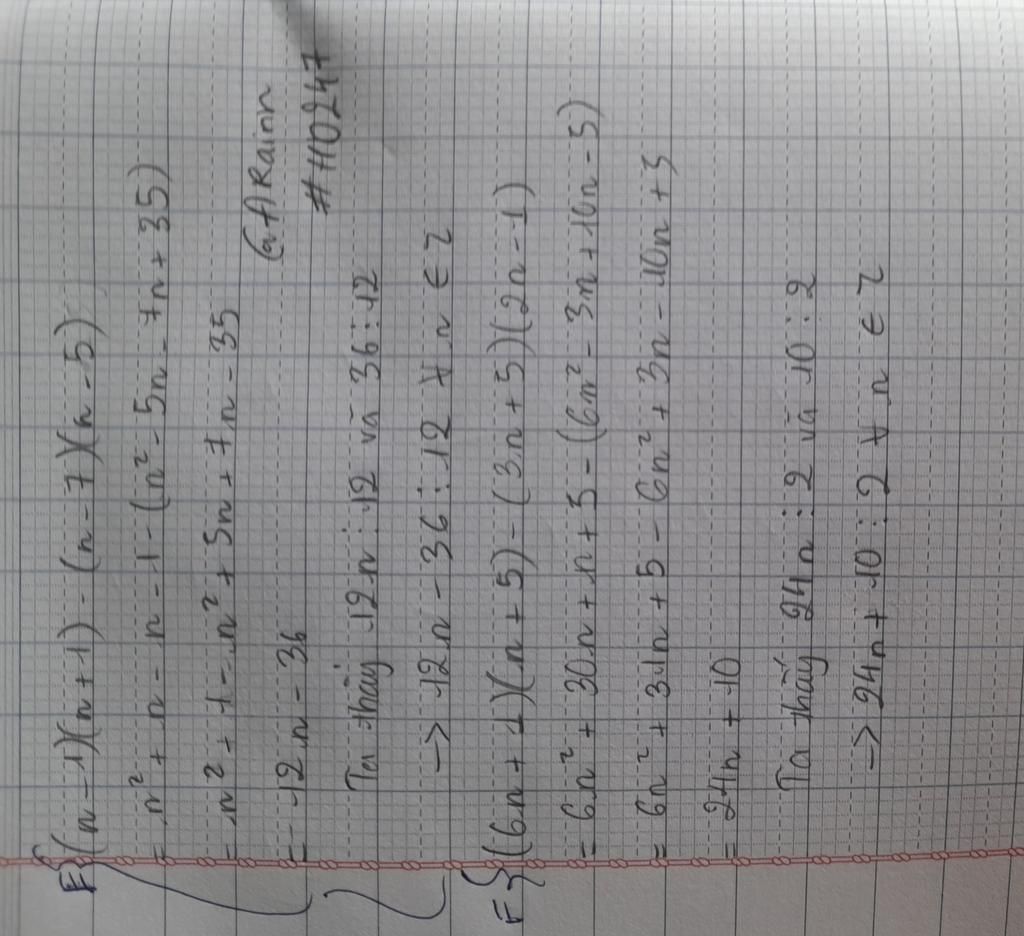 E} (n-1)(n+1) - (n-7)(n-5)
= n² + n - n - 1 - (n² - 5n - 7n + 35)
= n² + 1 - n² + 5n + 7n - 35
= -12n - 36
GARainn
#110247
Ta thấy 12n ⋮ 12 và 36 ⋮ 12
-> 12n - 36 ⋮ 12 ∀ n ∈ Z
F} (6n+1)(n+5) - (3n+5)(2n-1)
= 6n² + 30n + n + 5 - (6n² - 3n + 10n - 5)
= 6n² + 31n + 5 - 6n² + 3n - 10n + 5
= 24n + 10
Ta thấy 24n ⋮ 2 và 10 ⋮ 2
-> 24n + 10 ⋮ 2 ∀ n ∈ Z